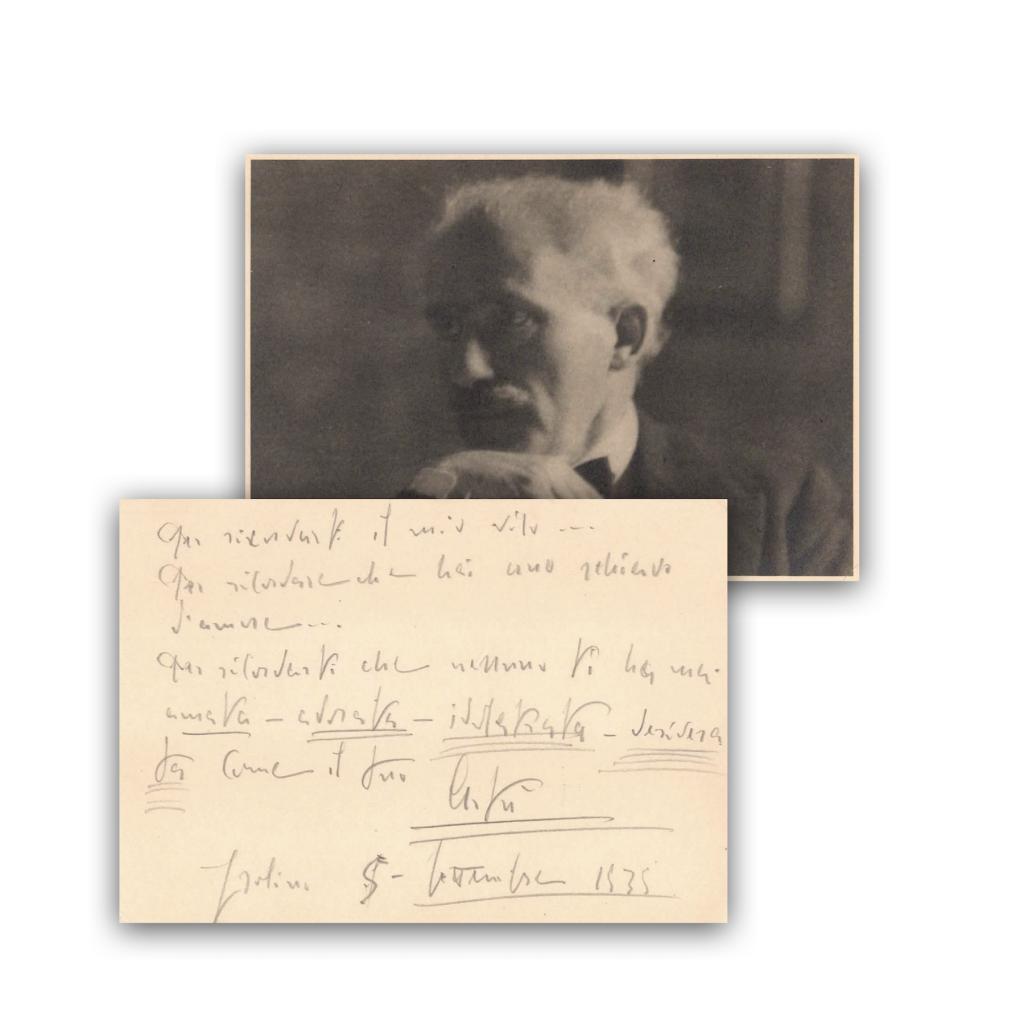 Per ricordarti il mio vòlto ...
Per ricordare che hai uno schiavo
d'amore....
Per ricordarti che nessuno ti ha mai
amata – adorata – idolatrata – desidera
ta come il tuo
Artù
Isolino 5 - Settembre 1935